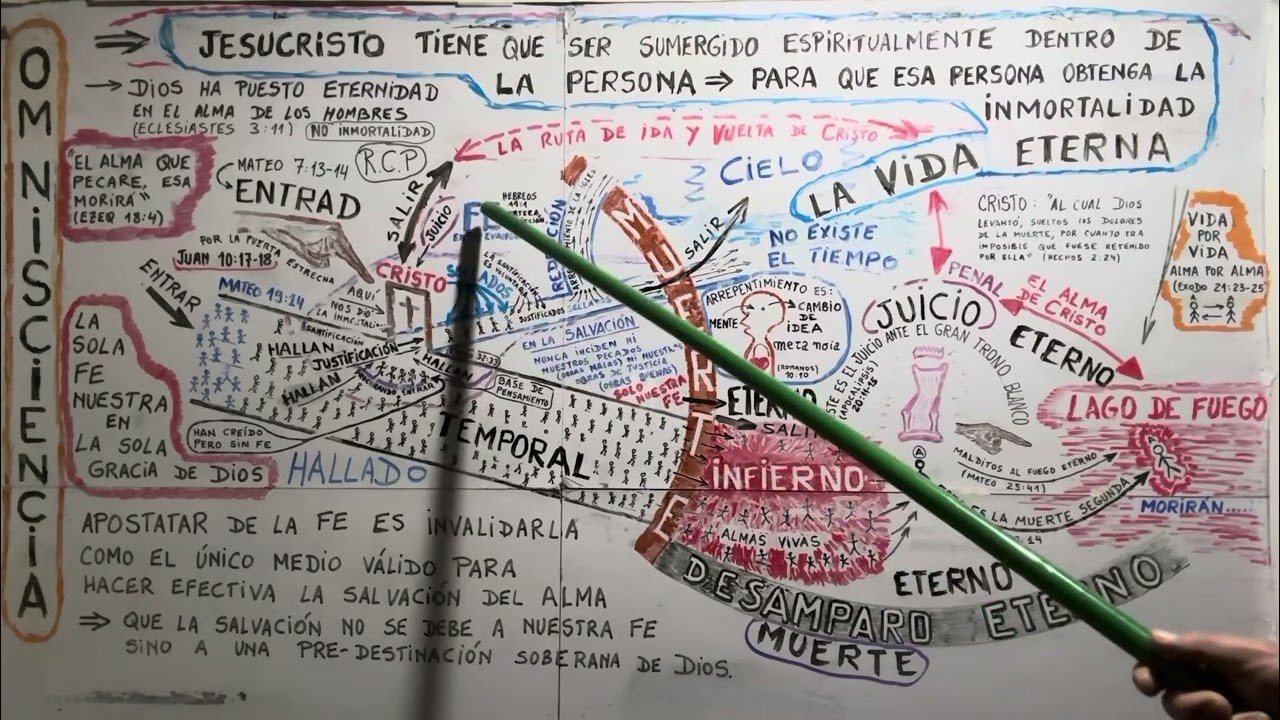 OMNISCIENCIA
⇒ JESUCRISTO TIENE QUE SER SUMERGIDO ESPIRITUALMENTE DENTRO DE
LA PERSONA ⇒ PARA QUE ESA PERSONA OBTENGA LA
INMORTALIDAD
ETERNA
LA VIDA
→ DIOS HA PUESTO ETERNIDAD
EN EL ALMA DE LOS HOMBRES
(ECLESIASTES 3:11) NO INMORTALIDAD
"EL ALMA QUE
PECARE, ESA
MORIRÁ"
(EZEQ 18:4)
MATEO 7:13-14
R.C.P.
ENTRAD
POR LA PUERTA
ESTRECHA
JUAN 10:17-18
ENTRAR
MATEO 19:14
LA RUTA DE IDA Y VUELTA DE CRISTO
SALIR
JUICIO
CRISTO
AQUÍ
NOS DIO
HEBREOS
CIELO
NO EXISTE
EL TIEMPO
SALIR
MUERTE
CRISTO: "AL CUAL DIOS
LEVANTÓ, SUELTOS LOS DOLORES
DE LA MUERTE, POR CUANTO ERA
IMPOSIBLE QUE FUESE RETENIDO
POR ELLA" (HECHOS 2:24)
VIDA
POR
VIDA
ALMA POR ALMA
(EXODO 21:23-25)
LA
SOLA
FE
NUESTRA
EN
LA SOLA
GRACIA DE DIOS
SANTIFICACIÓN
HALLAN
JUSTIFICACIÓN
HALLAN
HALLAN
HAN CREÍDO
PERO SIN FE
HALLADO
TEMPORAL
BASE DE
PENSAMIENTO
EN LA SALVACIÓN
NUNCA INCIDEN NI
NUESTROS PECADOS
(OBRAS MALAS) NI NUESTRAS
OBRAS DE JUSTICIA
(OBRAS BUENAS)
SOLO NUESTRA
FE
ARREPENTIMIENTO ES:
MENTE
CAMBIO
DE
IDEA
metanoia
(ROMANOS)
10:10
PENAL
JUICIO
ANTE EL GRAN TRONO BLANCO
ESTE ES EL JUICIO
(APOCALIPSIS)
20:11-15
EL ALMA
DE CRISTO
ETERNO
LAGO DE FUEGO
MALDITOS AL FUEGO ETERNO
(MATEO 25:41)
ES LA MUERTE SEGUNDA
MORIRÁN.....
ETERNO
INFIERNO
ALMAS VIVAS
ETERNO
DESAMPARO ETERNO
MUERTE
APOSTATAR DE LA FE ES INVALIDARLA
COMO EL ÚNICO MEDIO VÁLIDO PARA
HACER EFECTIVA LA SALVACIÓN DEL ALMA
⇒ QUE LA SALVACIÓN NO SE DEBE A NUESTRA FE
SINO A UNA PRE-DESTINACIÓN SOBERANA DE DIOS.